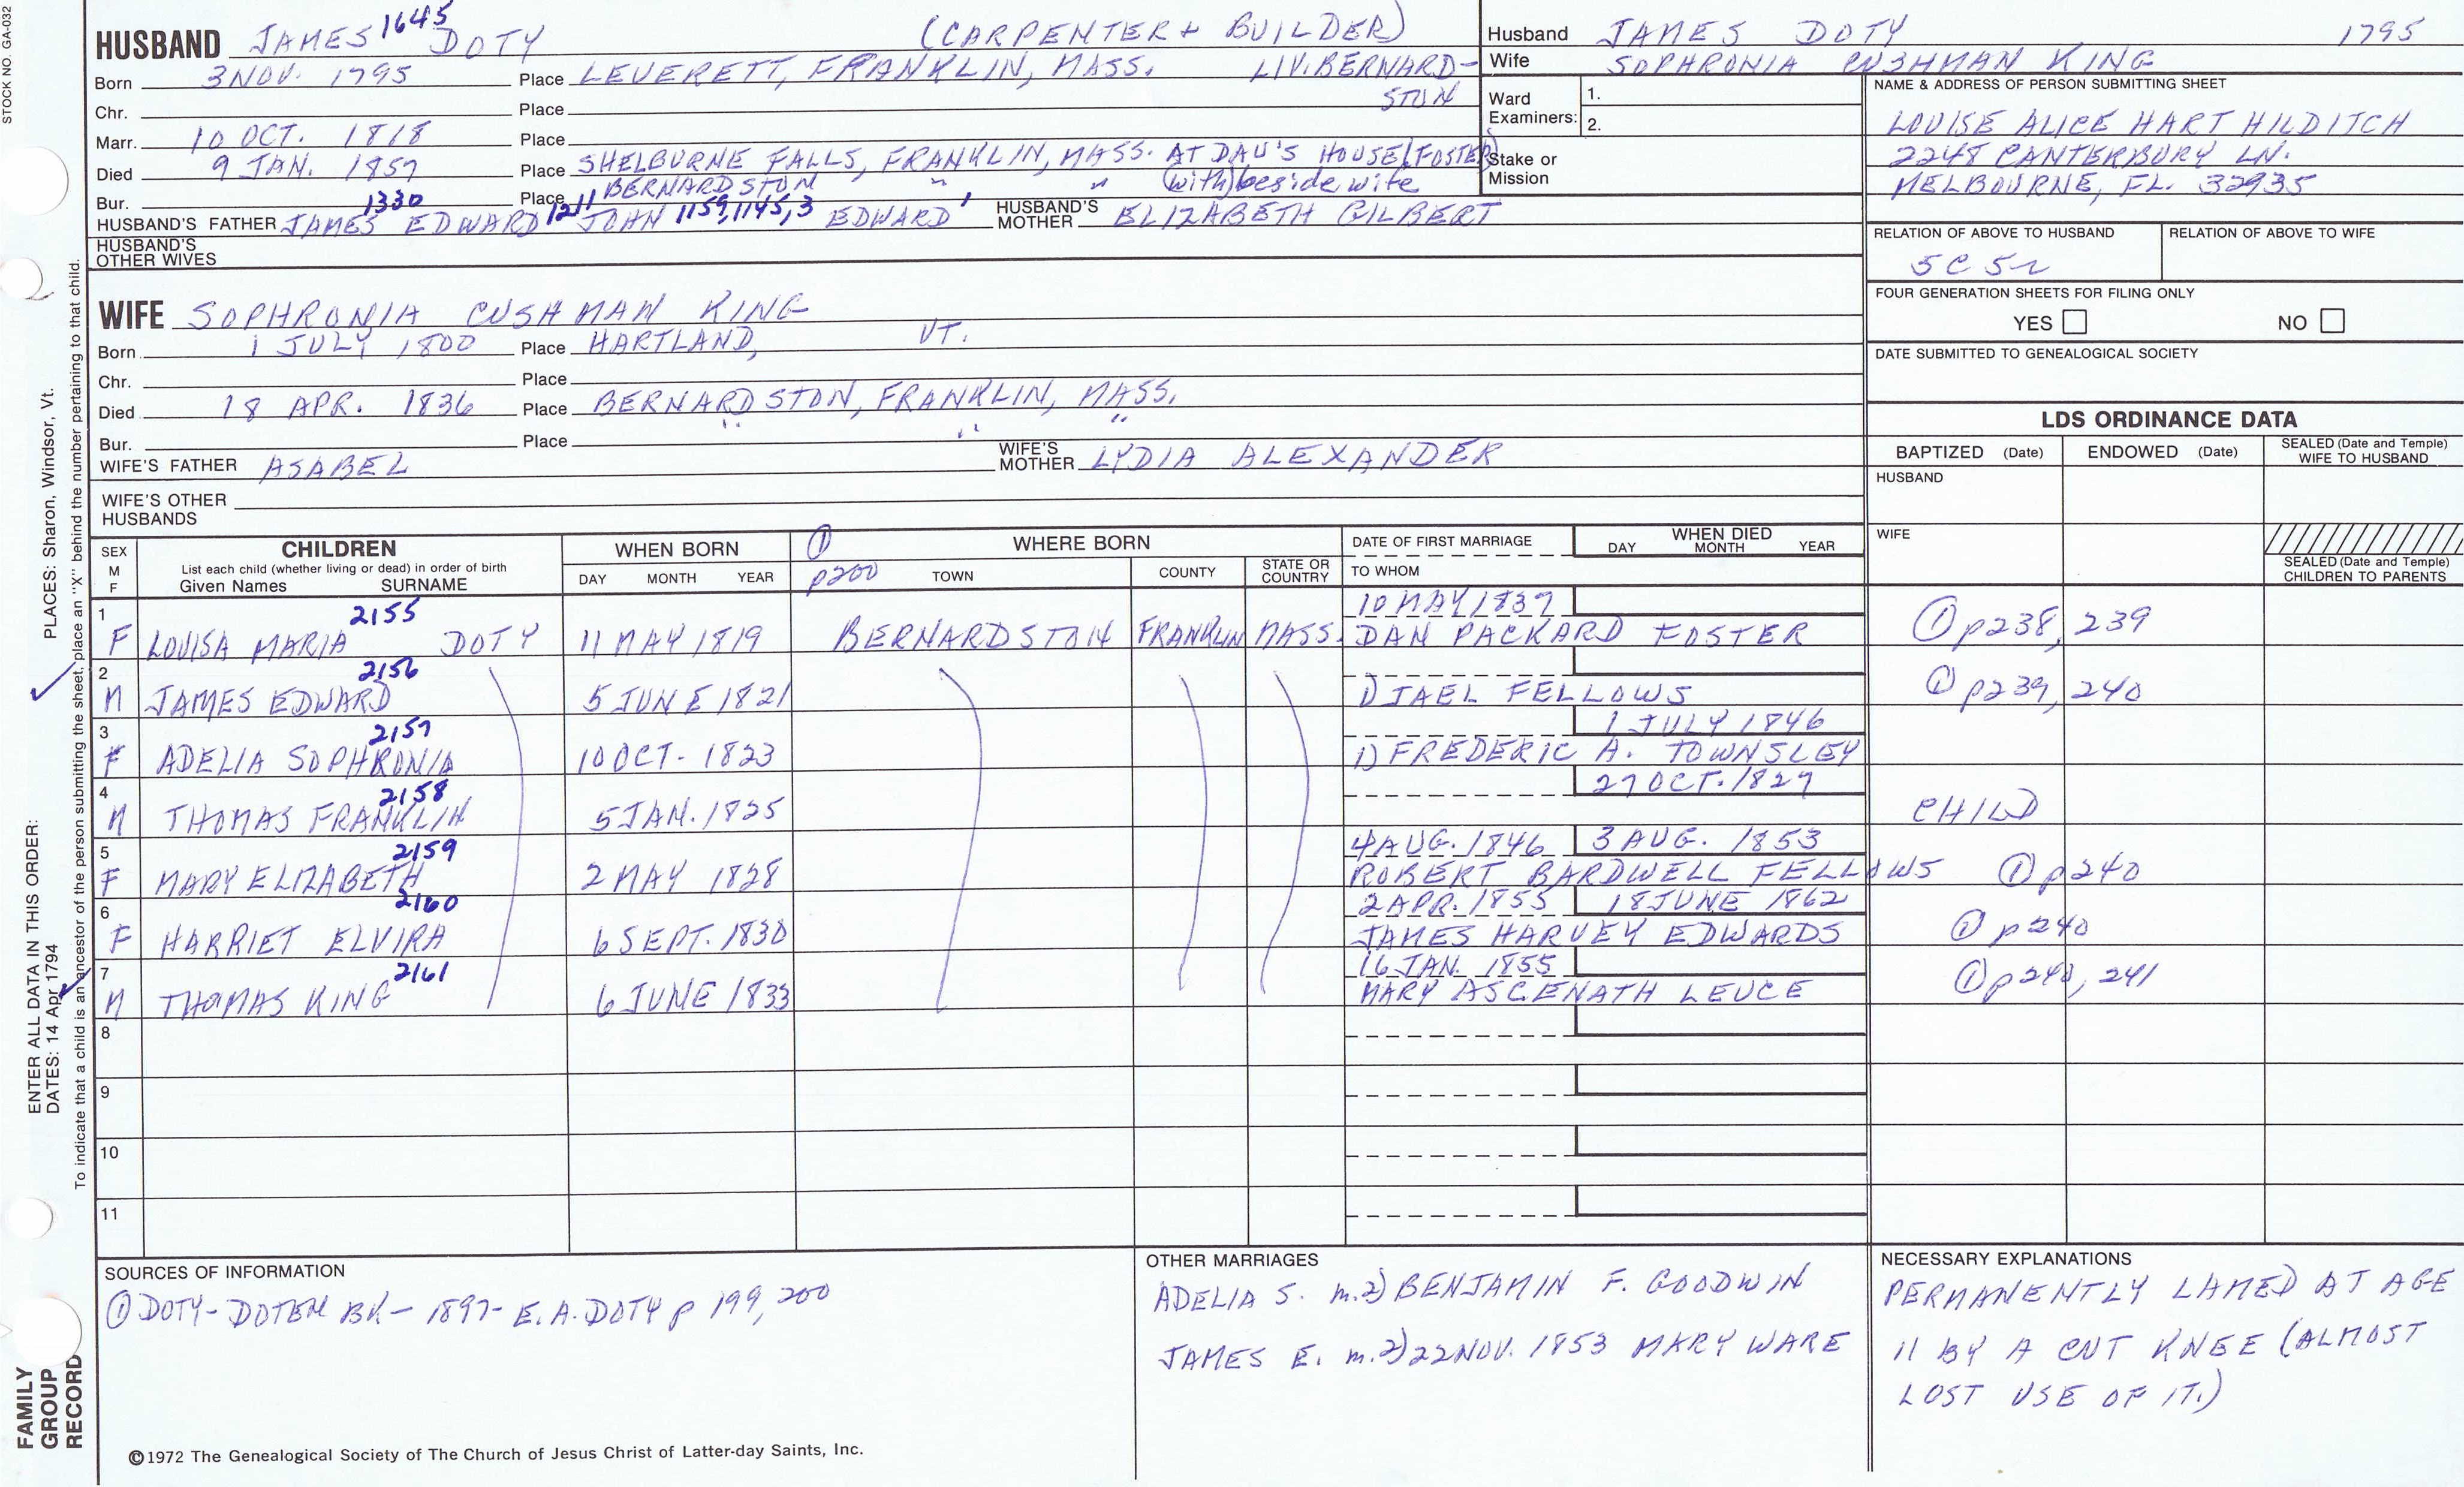 STOCK NO. GA-032
HUSBAND JAMES 1645 DOTY (CARPENTER + BUILDER)
Born 3 NOV. 1795 Place LEVERETT, FRANKLIN, MASS. LIV. BERNARD-
STON
Chr. Place
Marr. 10 OCT. 1818 Place
Died 9 JAN. 1857 Place SHELBURNE FALLS, FRANKLIN, MASS. AT DAU'S HOUSE (FOSTER)
Bur. Place BERNARDSTON " " (with) beside wife
HUSBAND'S FATHER JAMES 1330 EDWARD 1211 JOHN 1159, 1145, 3 EDWARD' HUSBAND'S MOTHER ELIZABETH GILBERT
HUSBAND'S OTHER WIVES
Husband JAMES DOTY 1795
Wife SOPHRONIA CUSHMAN KING
Ward Examiners: 1.
2.
Stake or Mission
NAME & ADDRESS OF PERSON SUBMITTING SHEET
LOUISE ALICE HART HILDITCH
2248 CANTERBURY LN.
MELBOURNE, FL. 32935
RELATION OF ABOVE TO HUSBAND RELATION OF ABOVE TO WIFE
5C 5r
FOUR GENERATION SHEETS FOR FILING ONLY
YES NO
DATE SUBMITTED TO GENEALOGICAL SOCIETY
WIFE SOPHRONIA CUSHMAN KING
Born 1 JULY 1800 Place HARTLAND, VT.
Chr. Place
Died 18 APR. 1836 Place BERNARDSTON, FRANKLIN, MASS.
Bur. Place " " "
WIFE'S FATHER ASABEL WIFE'S MOTHER LYDIA ALEXANDER
WIFE'S OTHER HUSBANDS
LDS ORDINANCE DATA
BAPTIZED (Date) ENDOWED (Date) SEALED (Date and Temple) WIFE TO HUSBAND
HUSBAND
WIFE
SEALED (Date and Temple) CHILDREN TO PARENTS
SEX M F CHILDREN List each child (whether living or dead) in order of birth Given Names SURNAME
WHEN BORN DAY MONTH YEAR
① p200 WHERE BORN TOWN COUNTY STATE OR COUNTRY
DATE OF FIRST MARRIAGE TO WHOM WHEN DIED DAY MONTH YEAR
1 2155 10 MAY 1837
F LOUISA MARIA DOTY 11 MAY 1819 BERNARDSTON FRANKLIN MASS. DAN PACKARD FOSTER ① p238, 239
2 2156
M JAMES EDWARD 5 JUNE 1821 1) JAEL FELLOWS ① p239, 240
3 2157 1 JULY 1846
F ADELIA SOPHRONIA 10 OCT. 1823 1) FREDERIC A. TOWNSLEY
4 2158 27 OCT. 1827
M THOMAS FRANKLIN 5 JAN. 1825 CHILD
5 2159 4 AUG. 1846 3 AUG. 1853
F MARY ELIZABETH 2 MAY 1828 ROBERT BARDWELL FELLOWS ① p240
6 2160 2 APR. 1855 18 JUNE 1862
F HARRIET ELVIRA 6 SEPT. 1830 JAMES HARVEY EDWARDS ① p240
7 2161 16 JAN. 1855
M THOMAS KING 6 JUNE 1833 MARY ASCENATH LEUCE ① p240, 241
8
9
10
11
SOURCES OF INFORMATION
① DOTY-DOTEN BK- 1897- E.A. DOTY p 199, 200
OTHER MARRIAGES
ADELIA S. m.2) BENJAMIN F. GOODWIN
JAMES E. m.2) 22 NOV. 1853 MARY WARE
NECESSARY EXPLANATIONS
PERMANENTLY LAMED AT AGE
11 BY A CUT KNEE (ALMOST
LOST USE OF IT.)
©1972 The Genealogical Society of The Church of Jesus Christ of Latter-day Saints, Inc.
FAMILY GROUP RECORD
ENTER ALL DATA IN THIS ORDER:
DATES: 14 Apr 1794 PLACES: Sharon, Windsor, Vt.
To indicate that a child is an ancestor of the person submitting the sheet, place an "X" behind the number pertaining to that child.